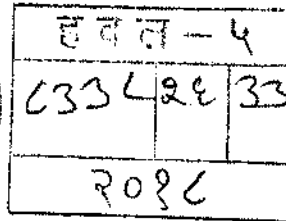 ह व ल - ५
८३३८ २६ ३३
२०१८